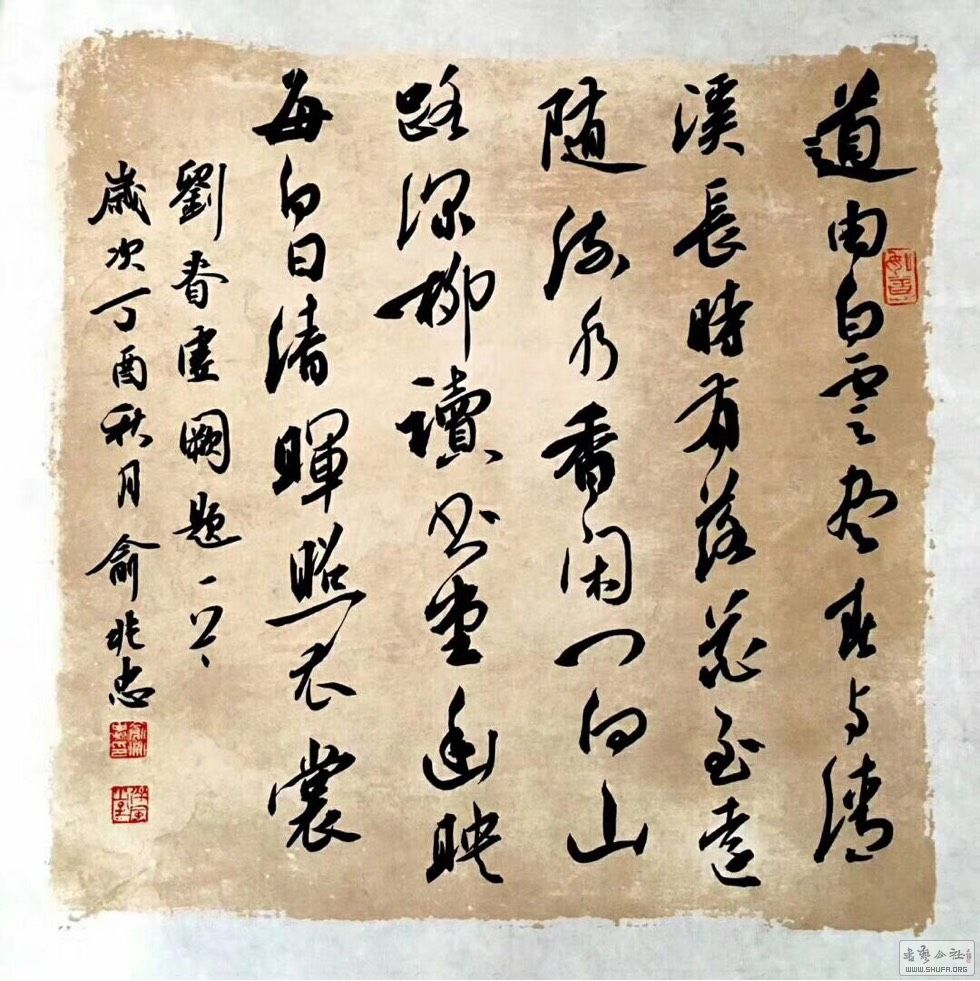 道由白雲尽春与清
溪長時有落花至遠
随流水香闲门向山
路深柳讀书堂幽映
每白日清暉照衣裳
劉眘虛闕題一首
歲次丁酉秋月俞兆忠
书艺公社
WWW.SHUFA.ORG